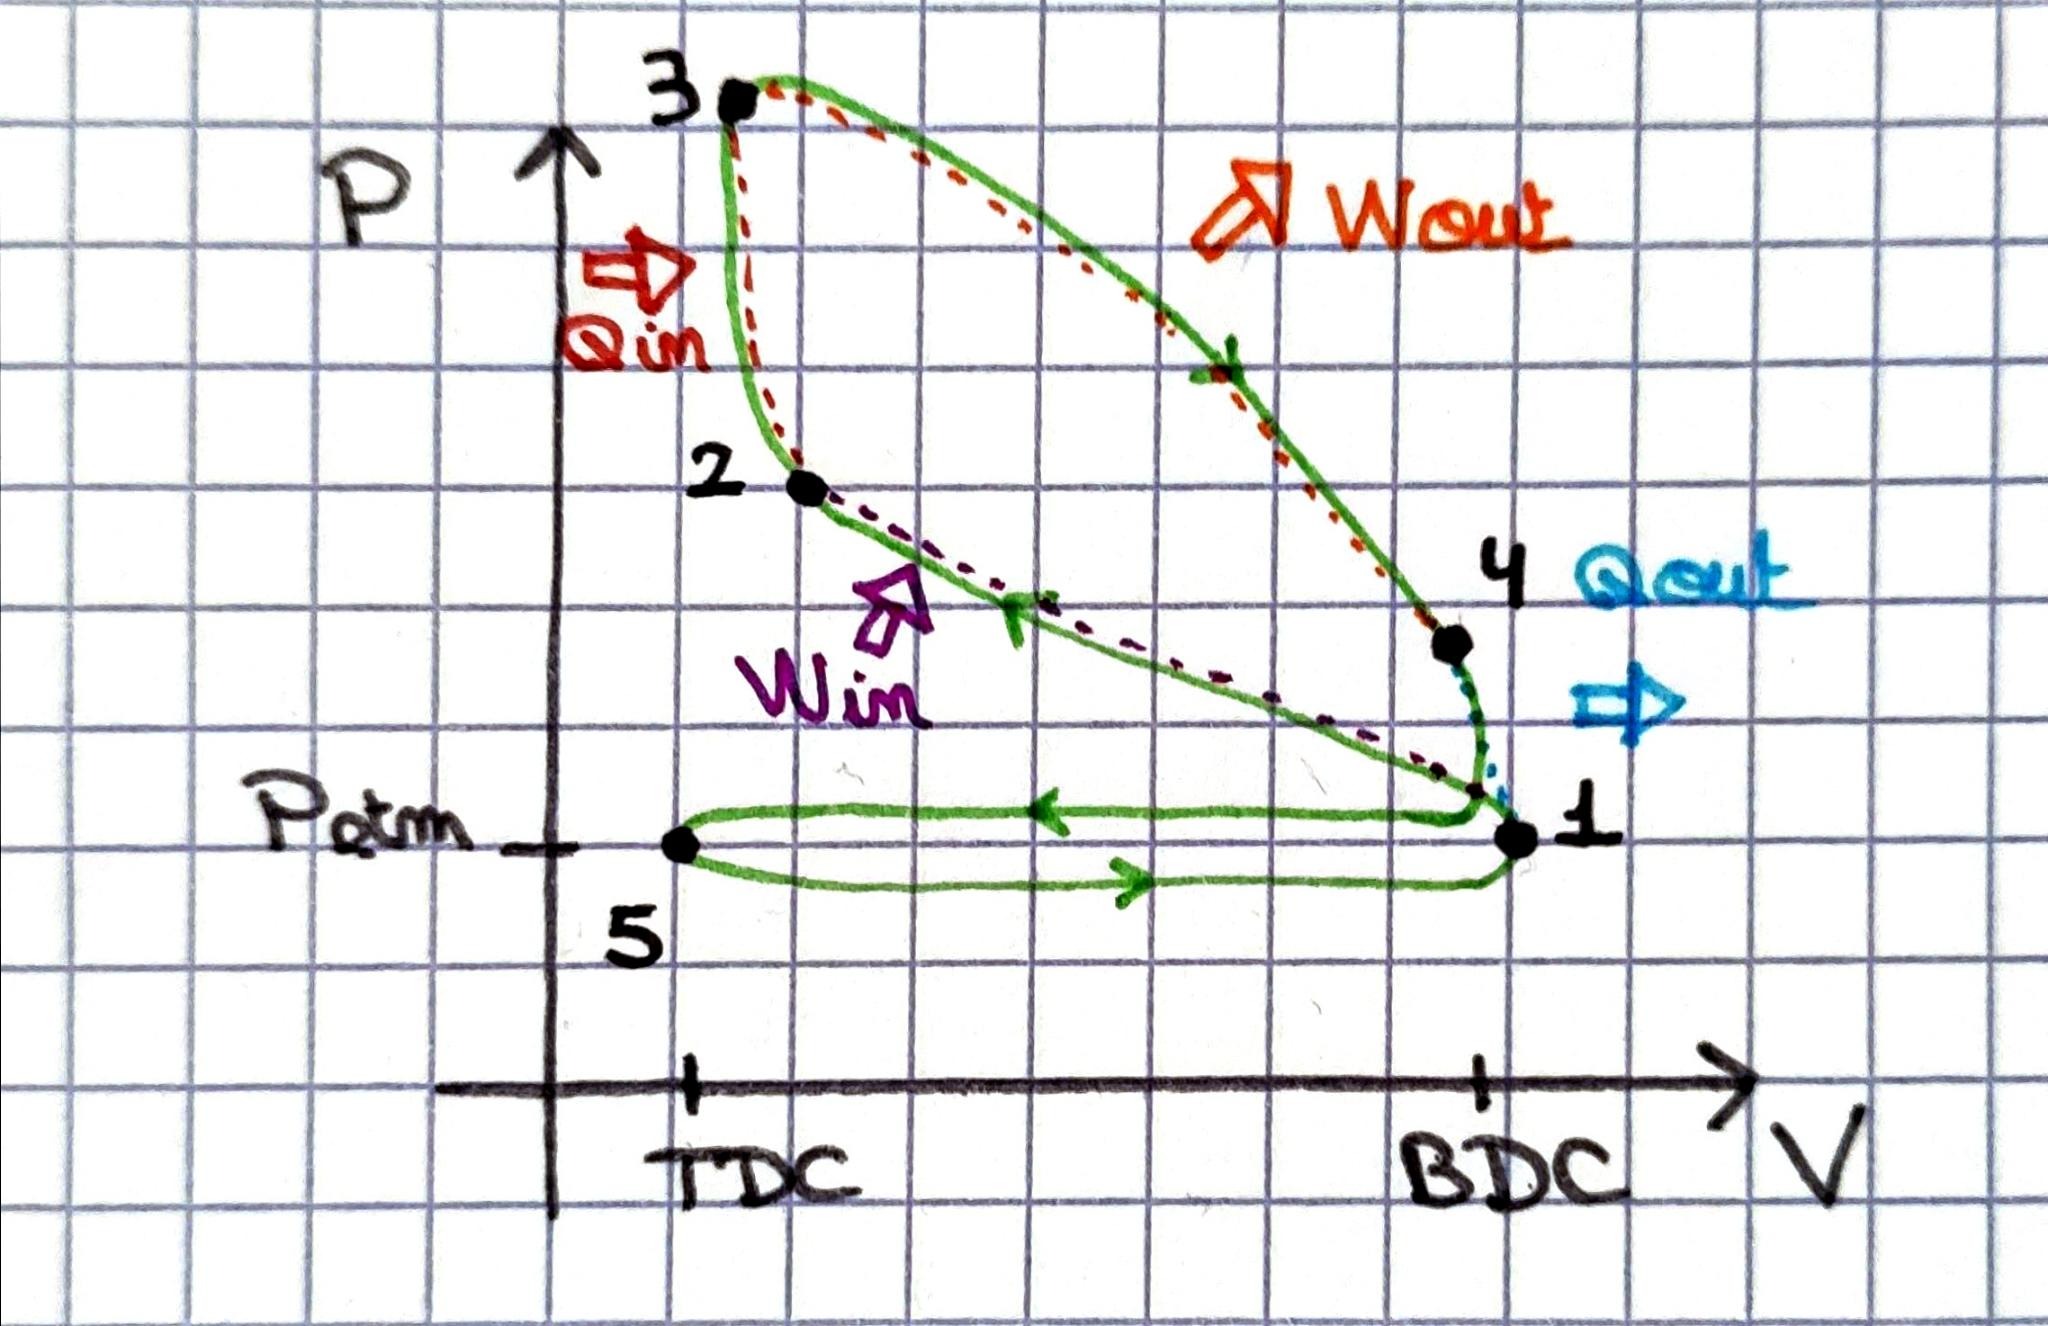 3
P
Wout
Qin
2
4 Qout
Win
Patm
1
5
TDC
BDC
V